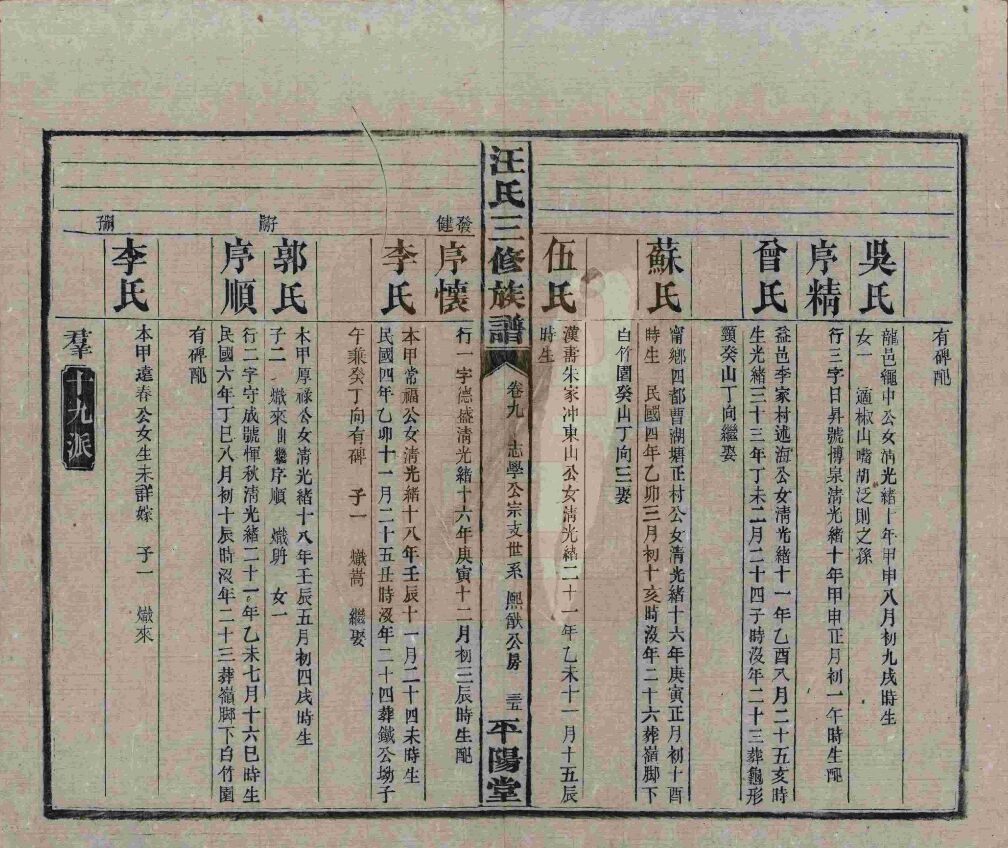 有碑配
吳氏
龍邑龜中公女清光緒十年甲申八月初九戌時生
女一 適椒山嘴胡泛則之孫
序精
行三字日昇號博泉清光緒十年甲申正月初一午時生配
曾氏
益邑李家村述海公女清光緒十一年乙酉八月二十五亥時
生光緒三十三年丁未二月二十四子時沒年二十三葬龜形
頸癸山丁向繼娶
蘇氏
甯鄉四都曹湖塘正村公女清光緒十六年庚寅正月初十酉
時生 民國四年乙卯三月初十亥時沒年二十六葬嶺脚下
白竹園癸山丁向三娶
伍氏
漢壽朱家冲東山公女清光緒二十一年乙未十一月十五辰
時生
汪氏三修族譜 卷九 志學公宗支世系 熙猷公房 平陽堂
發健
序懷
行一字德盛清光緒十六年庚寅十二月初三辰時生配
李氏
本甲常福公女清光緒十八年壬辰十一月二十四未時生
民國四年乙卯十一月二十五丑時沒年二十四葬鐵公坳子
午兼癸丁向有碑 子一 熾嵩 繼娶
郭氏
本甲厚祿公女清光緒十八年壬辰五月初四戌時生
子二 熾來出繼序順 熾玬 女一
序順
行二字守成號恽秋清光緒二十一年乙未七月十六巳時生
民國六年丁巳八月初十辰時沒年二十三葬嶺脚下白竹園
有碑配
李氏
本甲遠春公女生未詳嫁 子一 熾來
羣
十九派